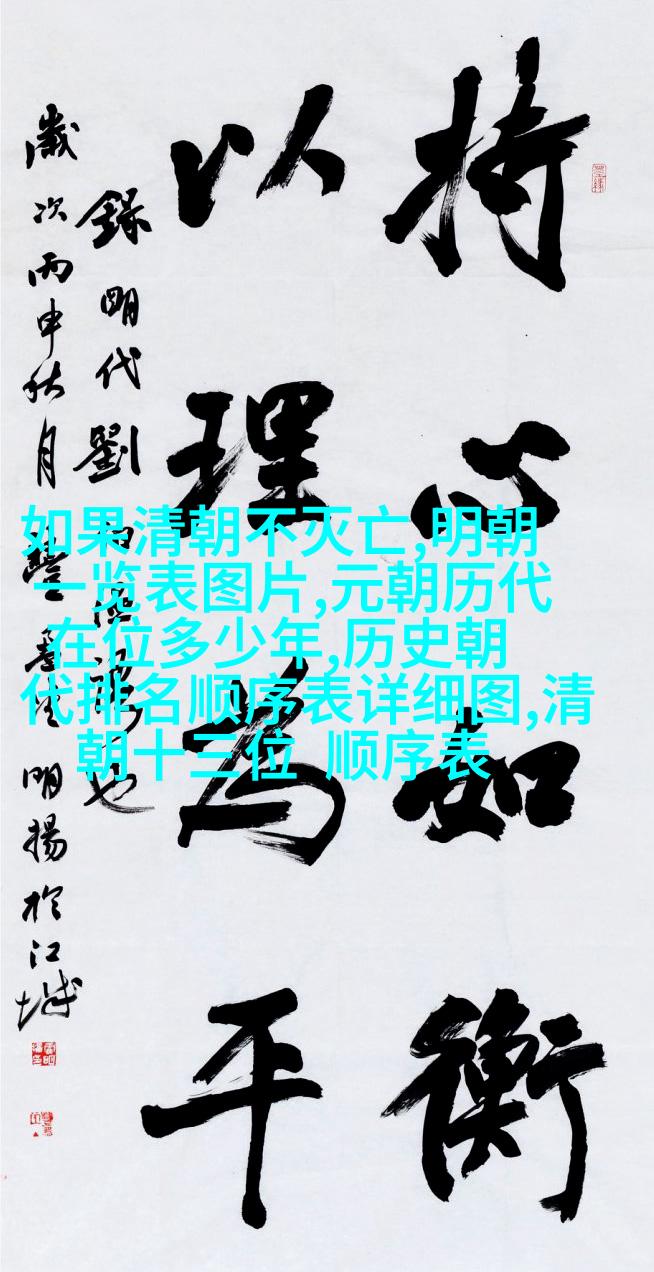 持心如衡
以理为平
錄明代劉
歲次丙申秋月
明揚於江城
如果清朝不灭亡,明朝
一览表图片,元朝历代
在位多少年,历史朝
代排名顺序表详细图,清
朝十三位 顺序表